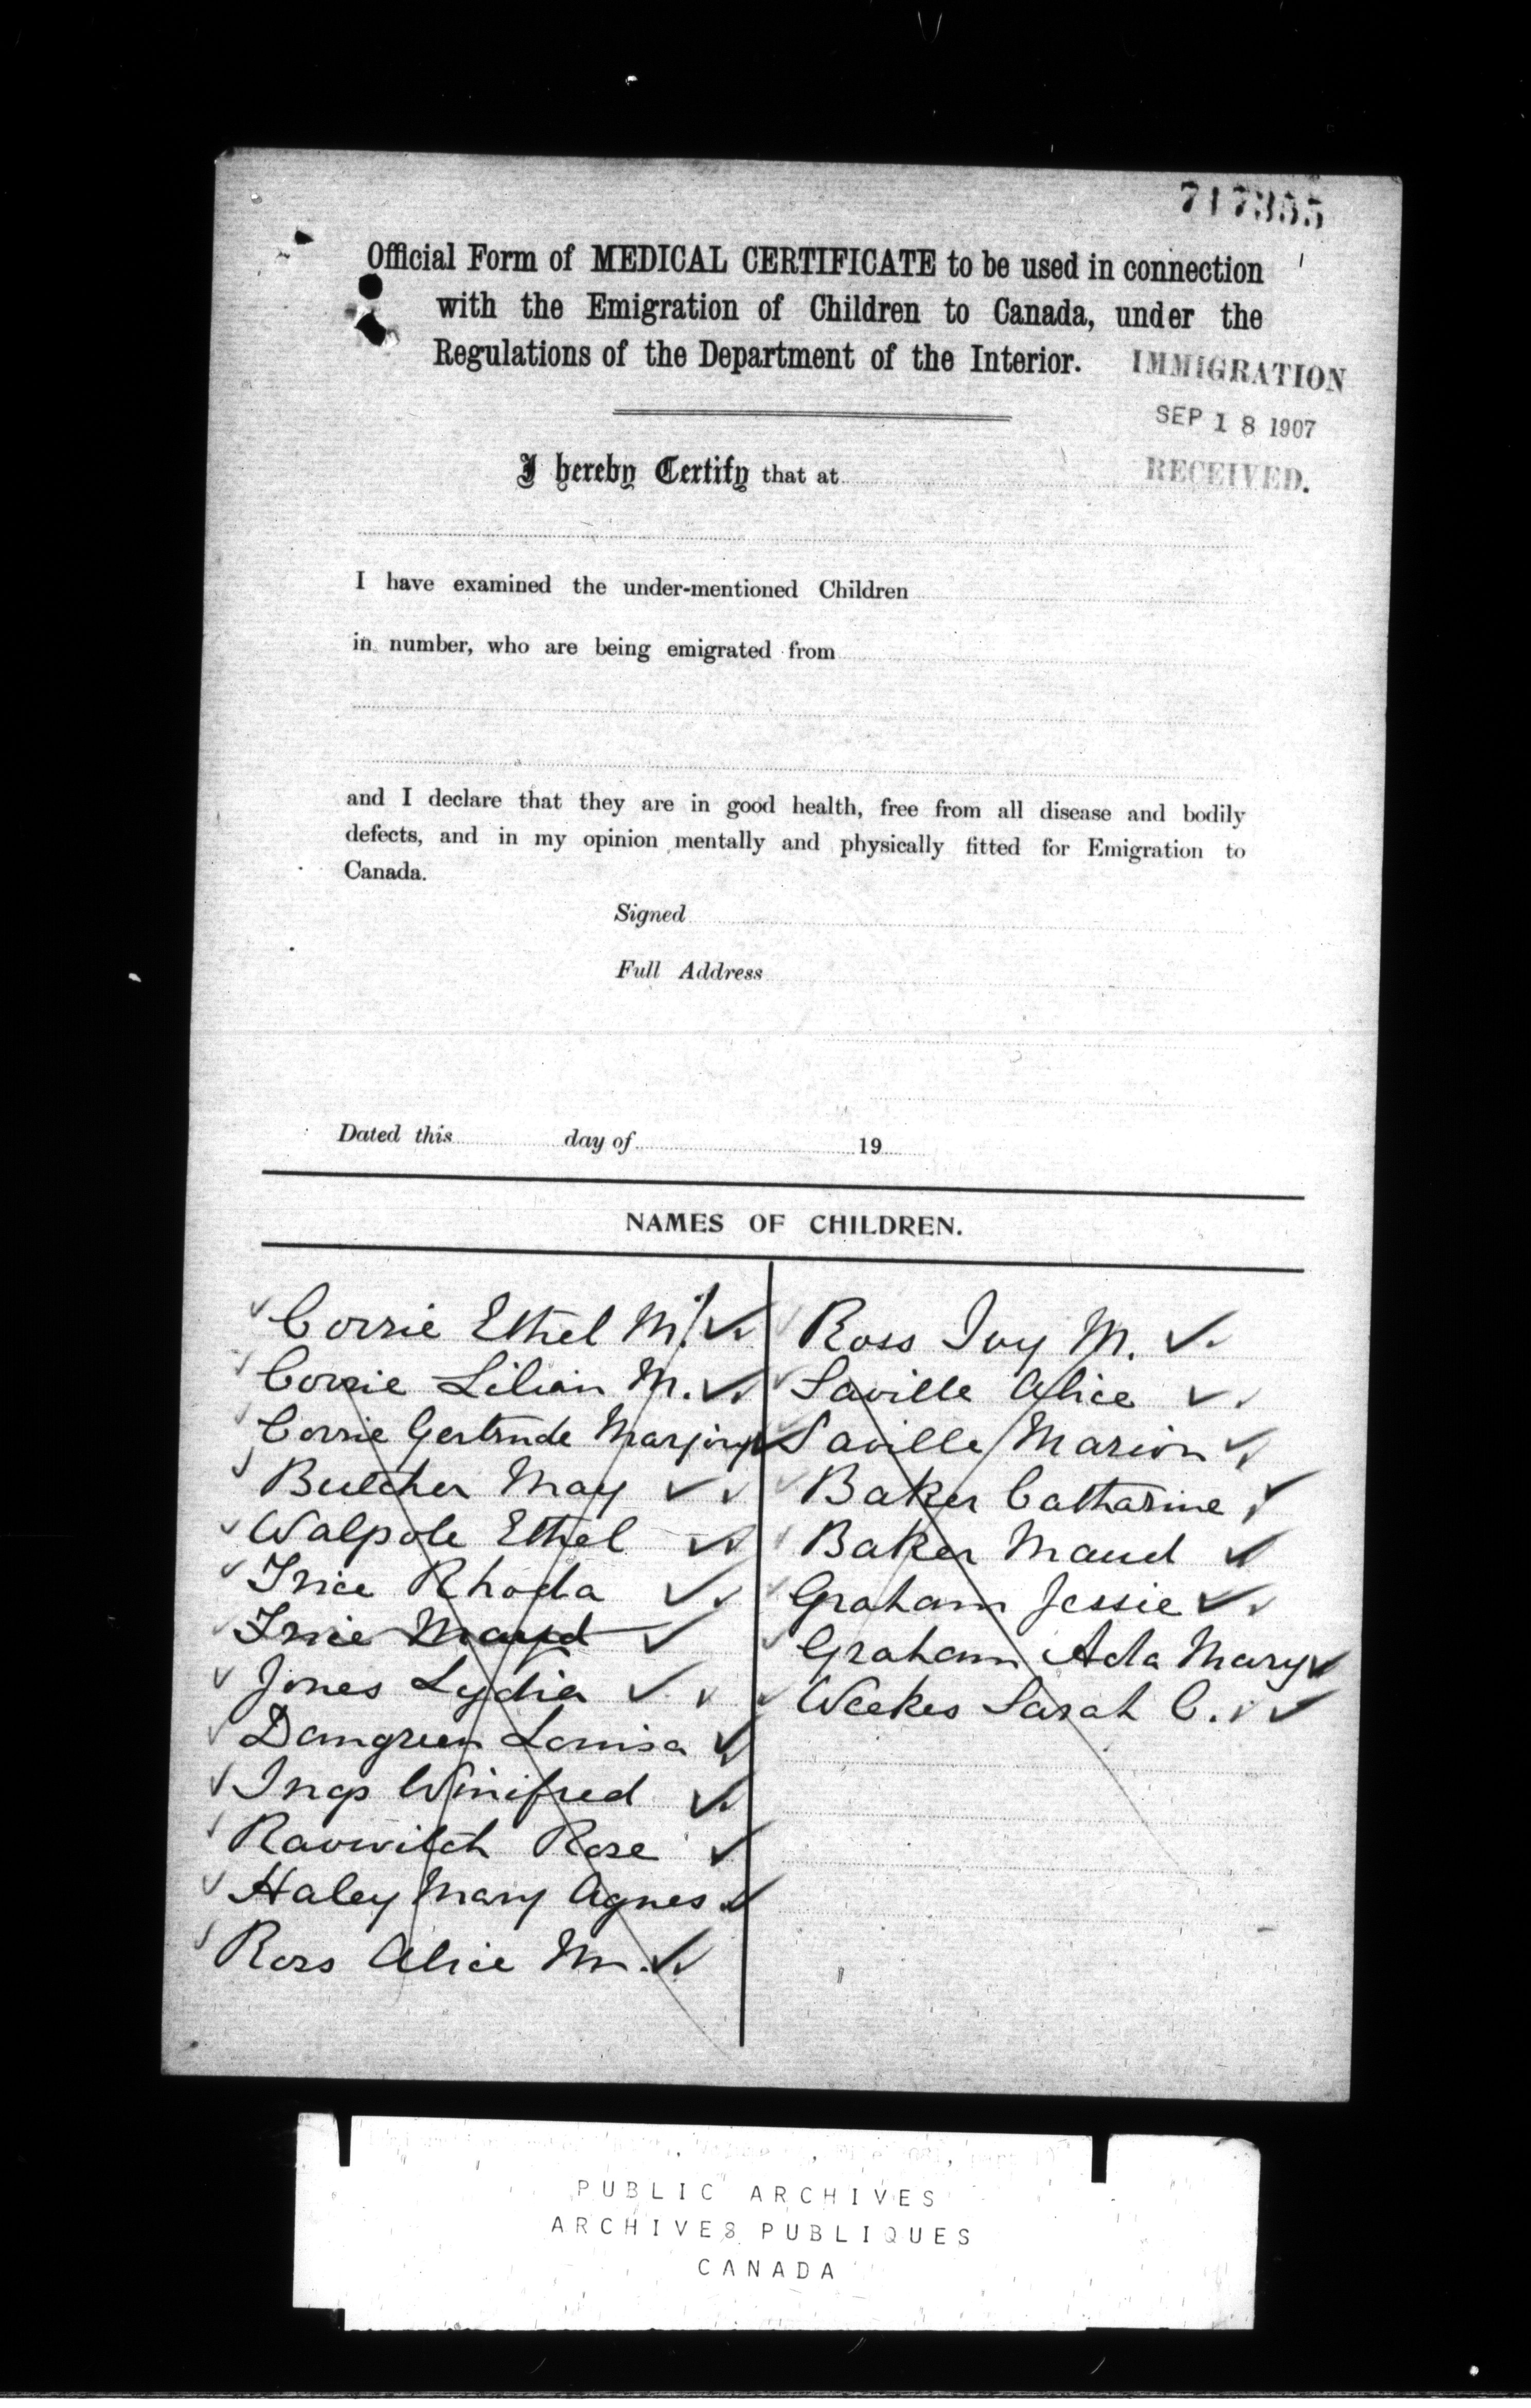 717355
Official Form of MEDICAL CERTIFICATE to be used in connection
with the Emigration of Children to Canada, under the
Regulations of the Department of the Interior.
IMMIGRATION
SEP 18 1907
RECEIVED.
I hereby Certify that at
I have examined the under-mentioned Children
in number, who are being emigrated from
and I declare that they are in good health, free from all disease and bodily
defects, and in my opinion mentally and physically fitted for Emigration to
Canada.
Signed
Full Address
Dated this day of 19
NAMES OF CHILDREN.
Corrie Ethel M.
Corrie Lilian M.
Corrie Gertrude Marjory
Butcher May
Walpole Ethel
Trice Rhoda
Trice Maud
Jones Lydia
Damgreen Louisa
Ings Winifred
Ravwitch Rose
Haley Mary Agnes
Ross Alice M.
Ross Ivy M.
Saville Alice
Saville Marion
Baker Catharine
Baker Maud
Graham Jessie
Graham Ada Mary
Weekes Sarah C.
PUBLIC ARCHIVES
ARCHIVES PUBLIQUES
CANADA